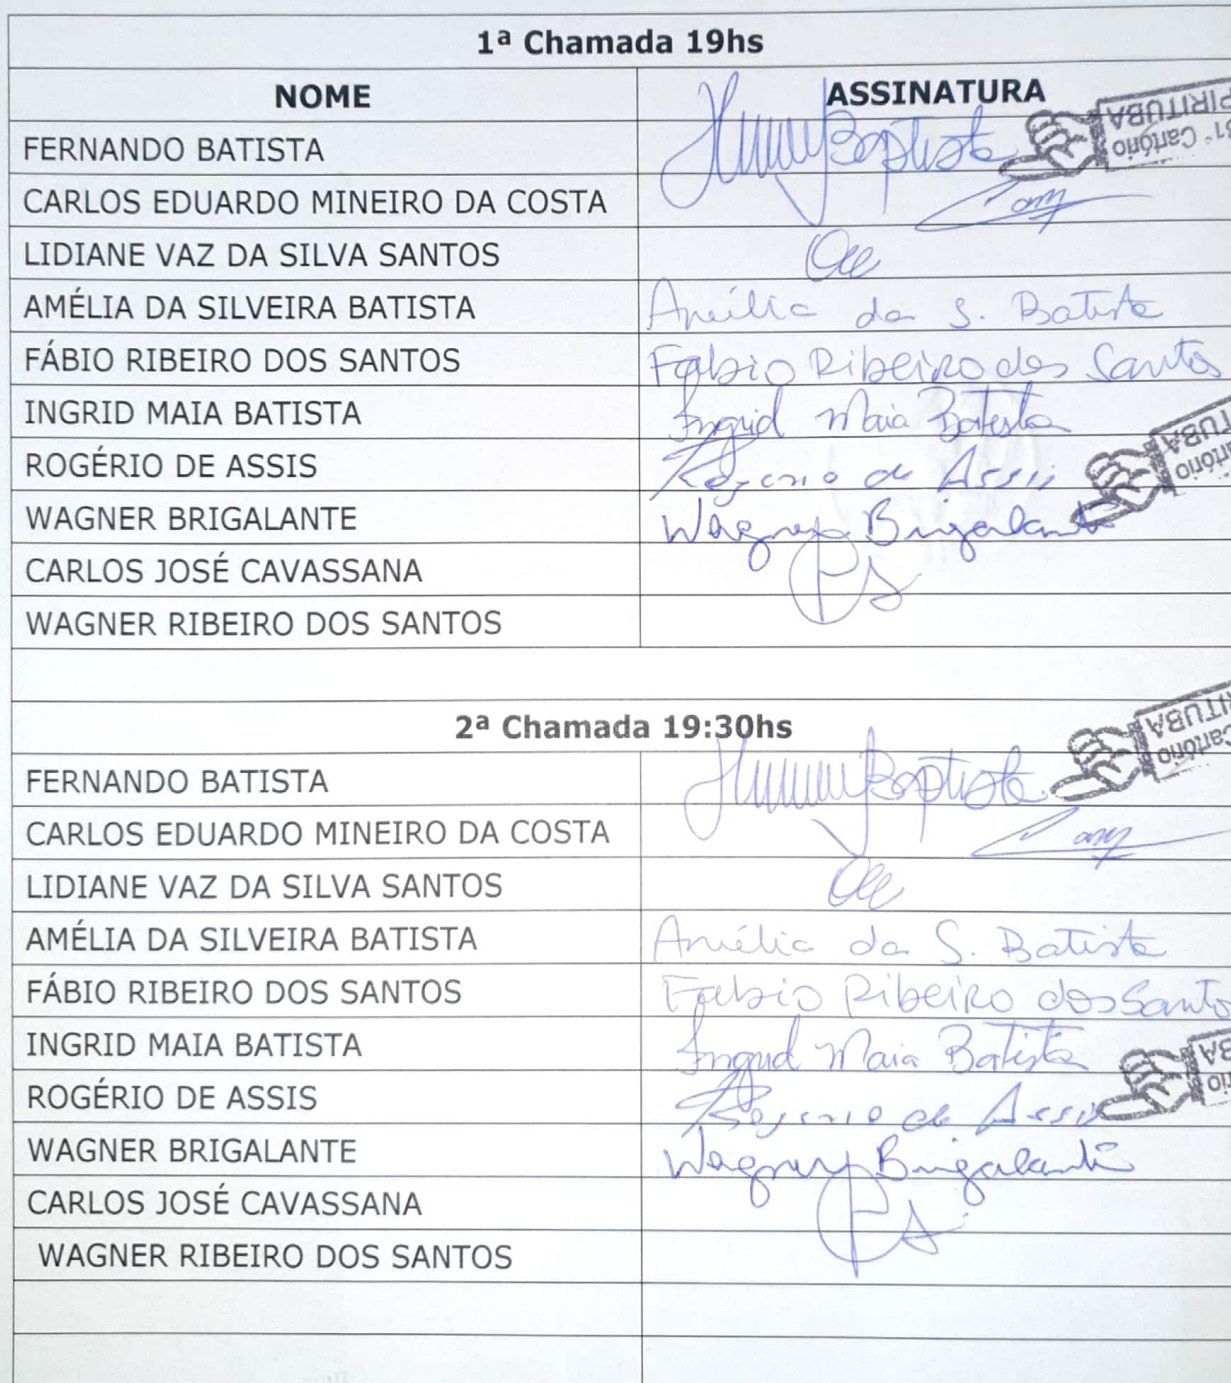 1ª Chamada 19hs
NOME ASSINATURA
FERNANDO BATISTA Baptista
CARLOS EDUARDO MINEIRO DA COSTA
LIDIANE VAZ DA SILVA SANTOS
AMÉLIA DA SILVEIRA BATISTA Amélia da S. Batista
FÁBIO RIBEIRO DOS SANTOS Fabio Ribeiro dos Santos
INGRID MAIA BATISTA Ingrid Maia Batista
ROGÉRIO DE ASSIS Rogerio de Assis
WAGNER BRIGALANTE Wagner Brigalante
CARLOS JOSÉ CAVASSANA
WAGNER RIBEIRO DOS SANTOS
2ª Chamada 19:30hs
FERNANDO BATISTA Baptista
CARLOS EDUARDO MINEIRO DA COSTA
LIDIANE VAZ DA SILVA SANTOS
AMÉLIA DA SILVEIRA BATISTA Amélia da S. Batista
FÁBIO RIBEIRO DOS SANTOS Fabio Ribeiro dos Santo
INGRID MAIA BATISTA Ingrid Maia Batista
ROGÉRIO DE ASSIS Rogerio de Assis
WAGNER BRIGALANTE Wagner Brigalante
CARLOS JOSÉ CAVASSANA
WAGNER RIBEIRO DOS SANTOS